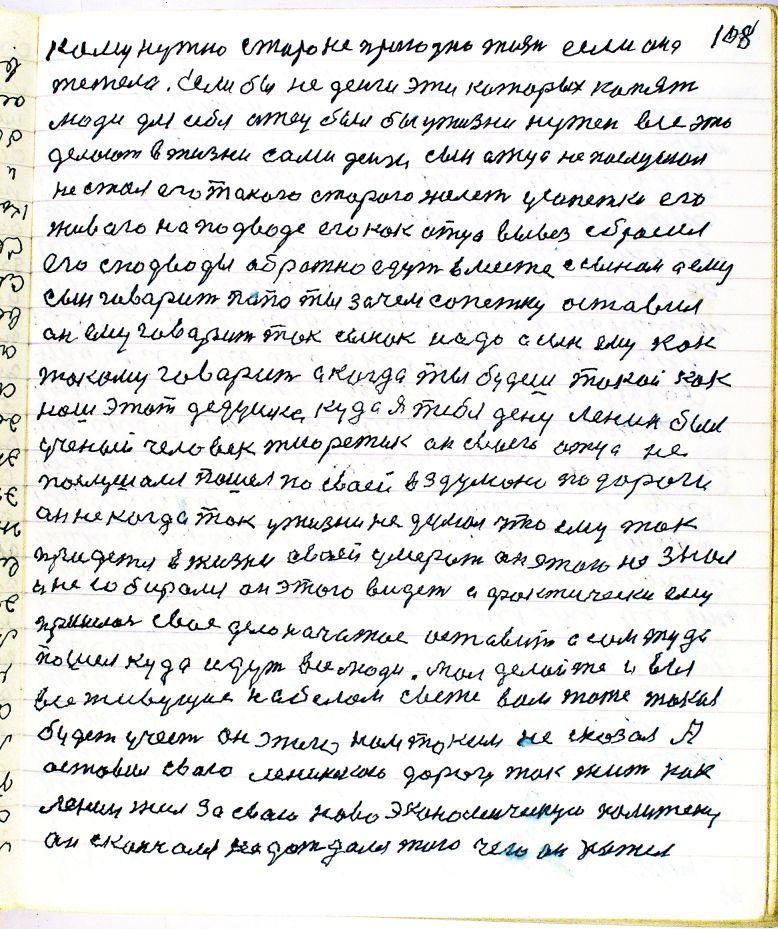 108
кому нужно старо не пригодно тоян если она
тетела. Если бы не денги эти которых копят
люди для себя отец был бы ужизни нужен все это
делоют в жизни сами денги, сын отца не послушол
не стал его такого старого жалет усанетки его
живаго на подводе его как отца вывез сбросил
его сподводы обратно едут вместе ссыном аему
сын говарит папо ты зачем сонетку оставил
он ему говарит так сынок надо а сын ему как
токому говарит а когда ты будеш такой как
наш этот дедушка, куда я тебя дену Ленин был
ученый человек тиоретик он своего отца не
послушал пошел по своей вздумоно подороги
он не когда так ужизни не думал что ему так
придется в жизни своей умерат он этого не знал
и не собирался он этого видет а фактически ему
пришлос свое дело начатое оставит а сам туда
пошел куда идут все люди. мол делойте и вы
все живущие на белом свете вам тоже такая
будет учест он этого нам таким не сказал Я
оставил сваю ленинскаю дорогу так жит как
Ленин жил за сваю ново экономическую политику
он скончался не дождался того чего он хотел